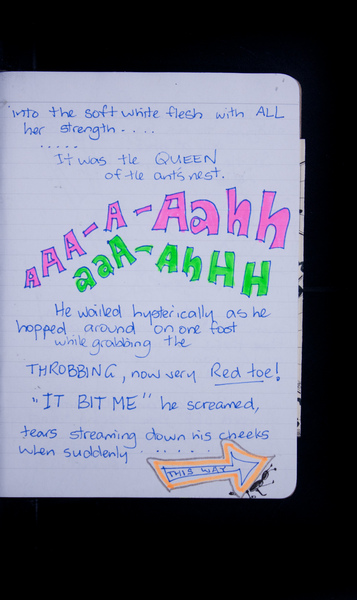 into the soft white flesh with ALL
her strength . . . .
. . . . .
It was the QUEEN
of the ants nest.
AAA-A-Aahh
aaA-AhHH
He wailed hysterically as he
hopped around on one foot
while grabbing the
THROBBING, now very Red toe!
"IT BIT ME" he screamed,
tears streaming down his cheeks
when suddenly . . . . . . .
THIS WAY